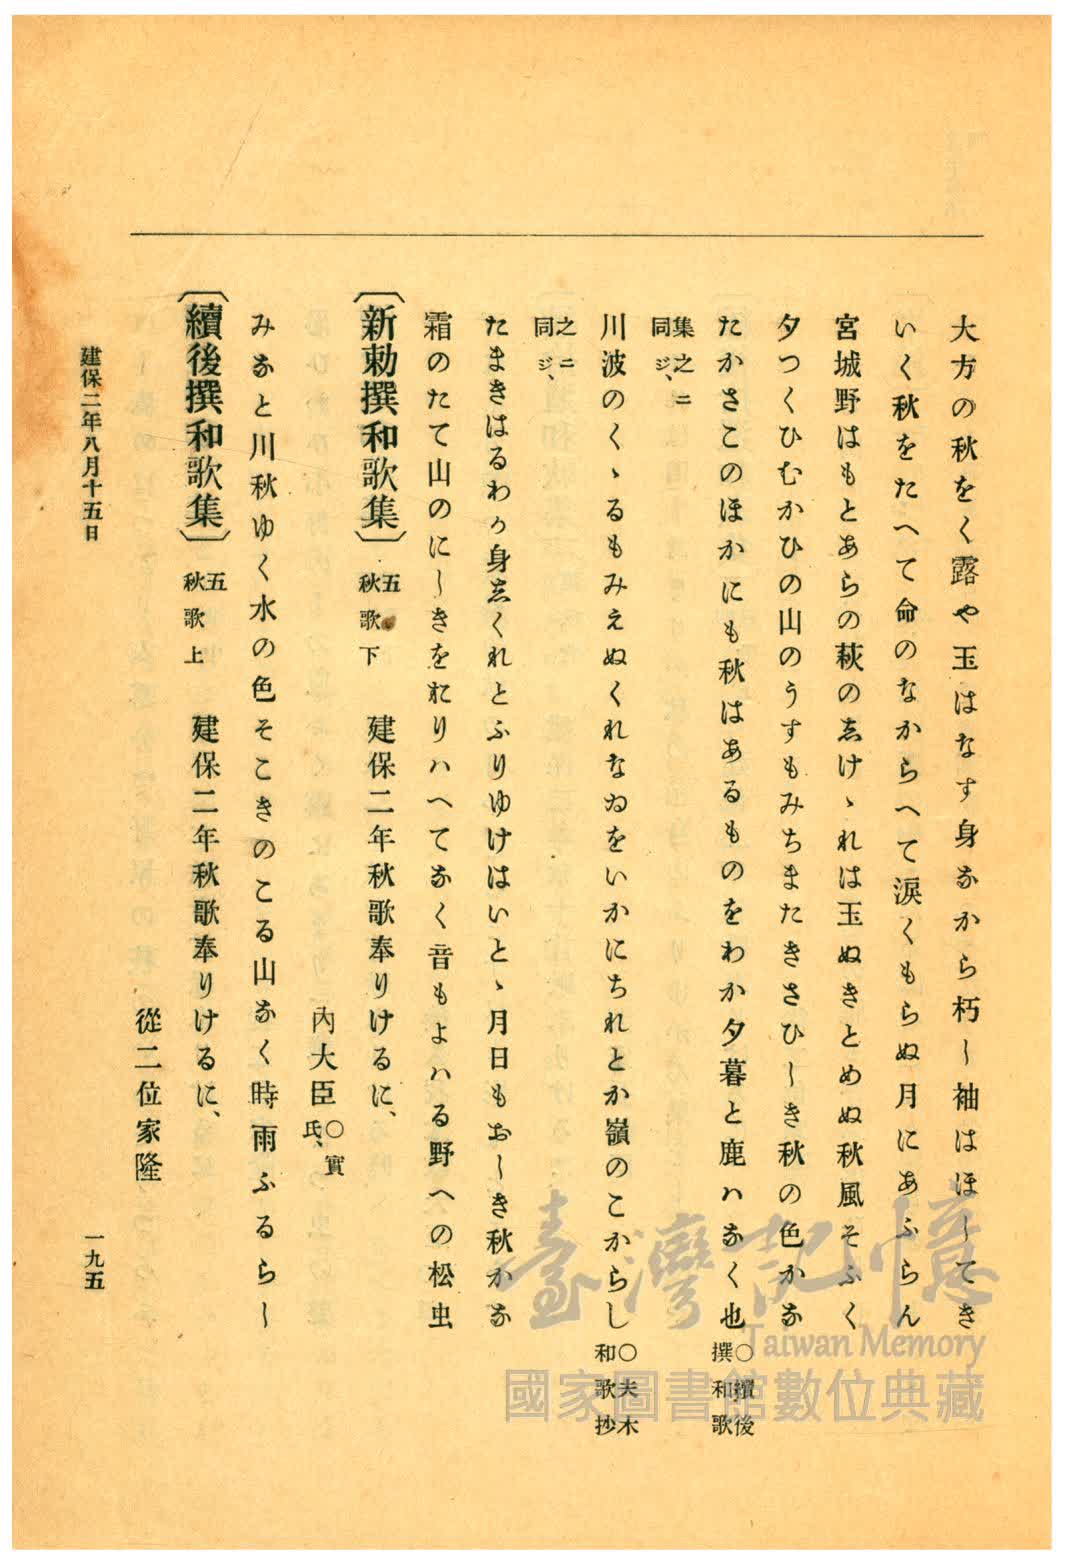 大方の秋をく露や玉はなす身なから朽し袖はほしてき
いく秋をたへて命のなからへて涙くもらぬ月にあふらん
宮城野はもとあらの萩のゑけゝれは玉ぬきとめぬ秋風そふく
夕つくひむかひの山のうすもみちまたきさひしき秋の色かな
たかさこのほかにも秋はあるものをわか夕暮と鹿ハなく也〇續後撰和歌
集之ニ同ジ、
川波のくゝるもみえぬくれなゐをいかにちれとか嶺のこからし〇夫木和歌抄
之ニ同ジ、
たまきはるわか身ゑくれとふりゆけはいとゝ月日もおしき秋かな
霜のたて山のにしきをおりハへてなく音もよハる野への松虫
〔新勅撰和歌集〕五秋歌下 建保二年秋歌奉りけるに、
內大臣〇實氏、
みなと川秋ゆく水の色そこきのこる山なく時雨ふるらし
〔續後撰和歌集〕五秋歌上 建保二年秋歌奉りけるに、
從二位家隆
建保二年八月十五日
一九五
臺灣記憶
Taiwan Memory
國家圖書館數位典藏